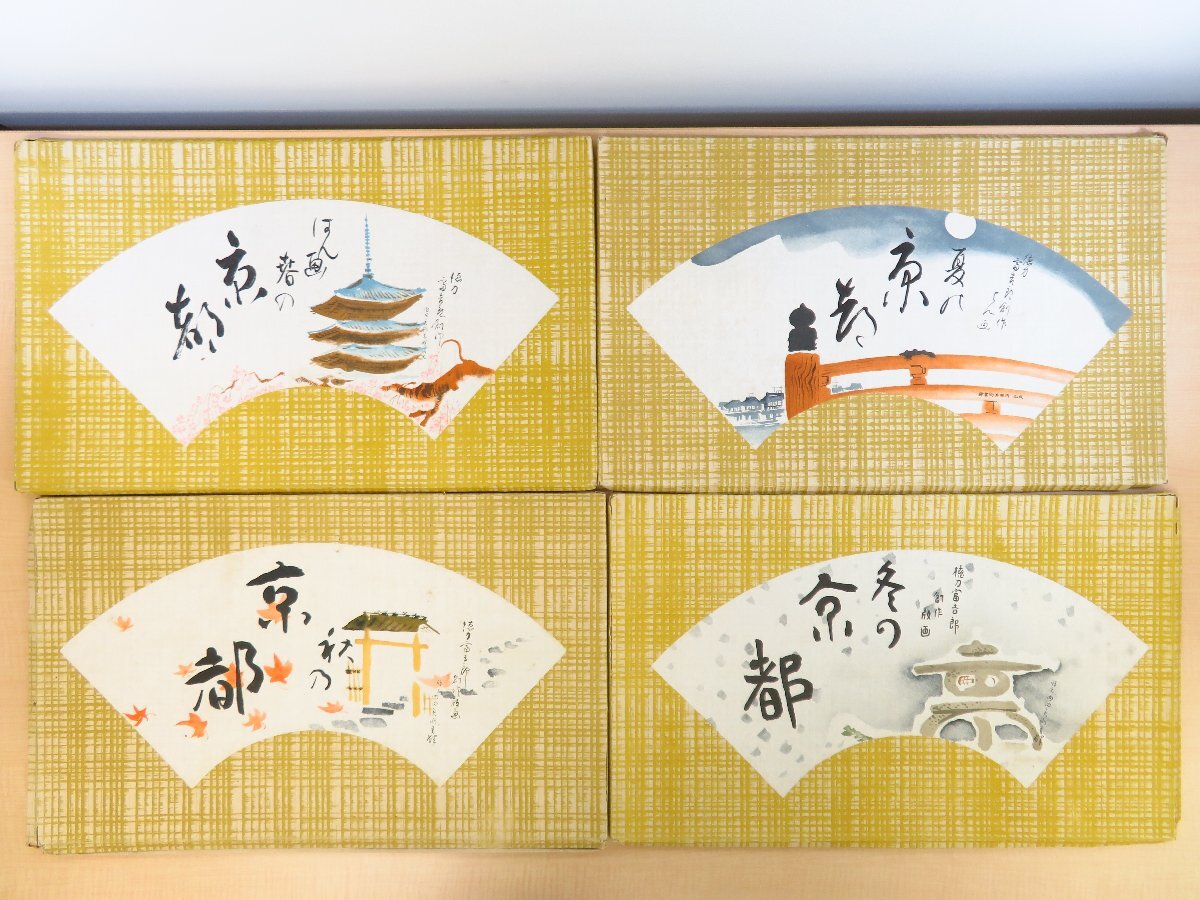 はん画
春の
京
都
徳力
富吉郎創作
夏の
京
都
徳力
富吉郎創作
はん画
京
都
秋の
徳力富吉郎
創作版画
冬の
京
都
徳力富吉郎
創作
版画